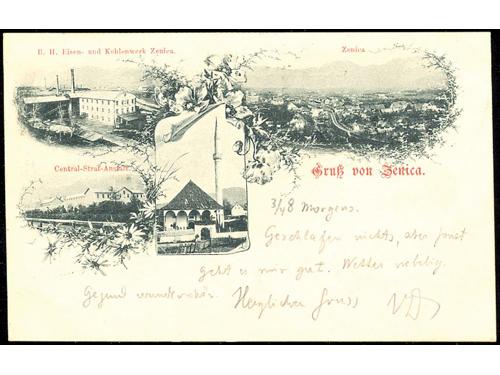 B. H. Eisen- und Kohlenwerk Zenica.
Zenica
Central-Straf-Anstalt.
Gruß von Zenica.
Morgens.
Geschlafen nichts, aber sonst
geht es mir gut. Wetter
Gegend wunderbar. Herzlichen Gruss